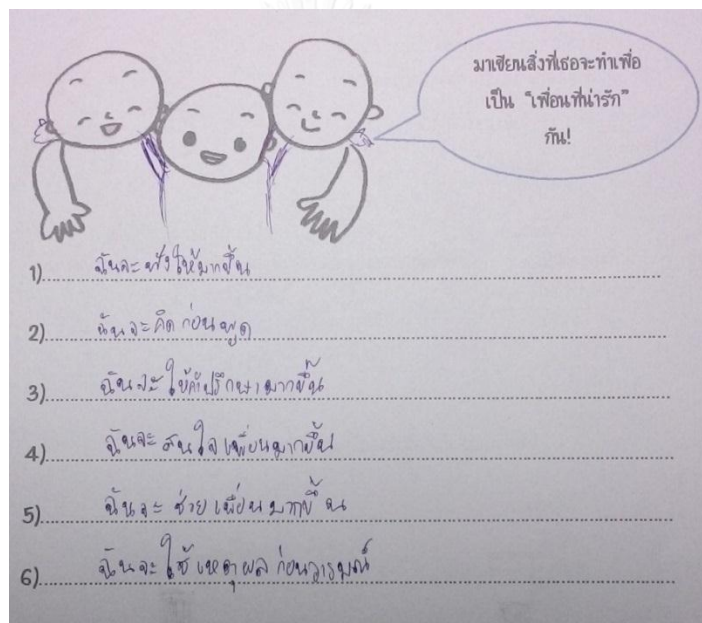 มาเขียนสิ่งที่เธอจะทำเพื่อ
เป็น “เพื่อนที่น่ารัก”
กัน!
1) ฉันจะฟังให้มากขึ้น
2) ฉันจะคิดก่อนพูด
3) ฉันจะให้คำปรึกษามากขึ้น
4) ฉันจะสนใจเพื่อนมากขึ้น
5) ฉันจะช่วยเพื่อนมากขึ้น
6) ฉันจะใช้เหตุผลก่อนอารมณ์